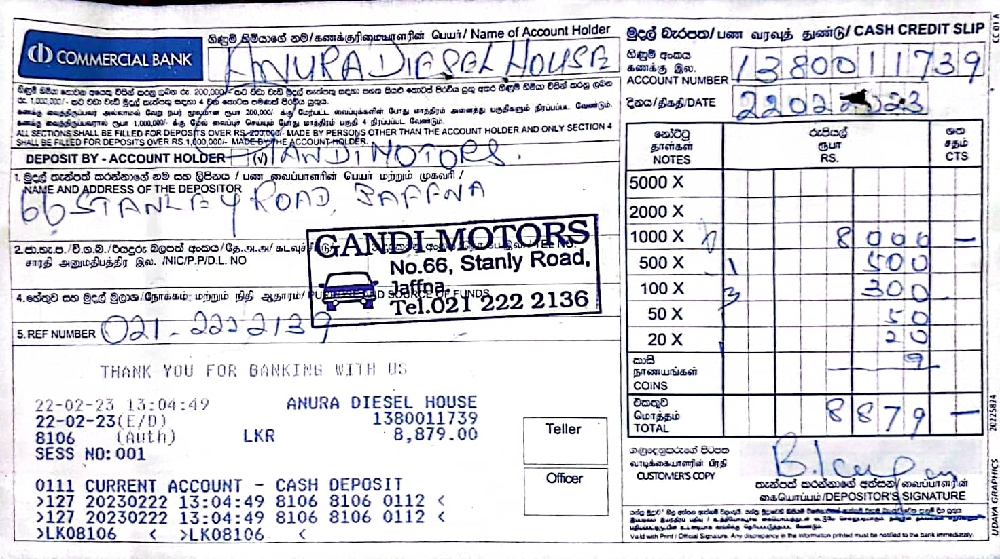 COMMERCIAL BANK
ගිණුම් හිමියාගේ නම/கணக்குரிமையாளரின் பெயர்/ Name of Account Holder
ANURA DIESEL HOUSE
මුදල් බැරපත/பண வரவுத் துண்டு/CASH CREDIT SLIP
ගිණුම් අංකය
கணக்கு இல.
ACCOUNT NUMBER 1380011739
දිනය/திகதி/DATE 2202 23
ALL SECTIONS SHALL BE FILLED FOR DEPOSITS OVER RS. 200,000/- MADE BY PERSONS OTHER THAN THE ACCOUNT HOLDER AND ONLY SECTION 4
SHALL BE FILLED FOR DEPOSITS OVER RS 1,000,000/- MADE BY THE ACCOUNT HOLDER.
DEPOSIT BY - ACCOUNT HOLDER (√) GANDI MOTORS.
1. මුදල් තැන්පත් කරන්නාගේ නම සහ ලිපිනය / பண வைப்பாளரின் பெயர் மற்றும் முகவரி /
NAME AND ADDRESS OF THE DEPOSITOR
66 STANLEY ROAD, JAFFNA
சாரதி அனுமதிபத்திர இல. /NIC/P.P/D.L. NO
GANDI MOTORS
No.66, Stanly Road,
Jaffna.
Tel.021 222 2136
SOURCE OF FUNDS
5. REF NUMBER 021-2222139
නෝට්ටු රුපියල් ශත
தாள்கள் ரூபா சதம்
NOTES RS. CTS
5000 X
2000 X
1000 X 8 000 —
500 X 1 500
100 X 3 300
50 X 50
20 X 1 20
කාසි
நாணயங்கள் 9
COINS
එකතුව
மொத்தம்
TOTAL 8879 —
THANK YOU FOR BANKING WITH US
22-02-23 13:04:49 ANURA DIESEL HOUSE
22-02-23(E/D) 1380011739
8106 (Auth) LKR 8,879.00
SESS NO:001
Teller
Officer
0111 CURRENT ACCOUNT - CASH DEPOSIT
>127 20230222 13:04:49 8106 8106 0112 <
>127 20230222 13:04:49 8106 8106 0112 <
>LK08106 < >LK08106 <
ගනුදෙනුකරුගේ පිටපත
வாடிக்கையாளரின் பிரதி
CUSTOMER'S COPY
තැන්පත් කරන්නාගේ අත්සන/வைப்பாளரின்
கையொப்பம்/DEPOSITOR'S SIGNATURE
Valid with Print / Official Signature. Any discrepancy in the information printed must be notified to the bank immediately.
UDAYA GRAPHICS
20225824
CC 01 A